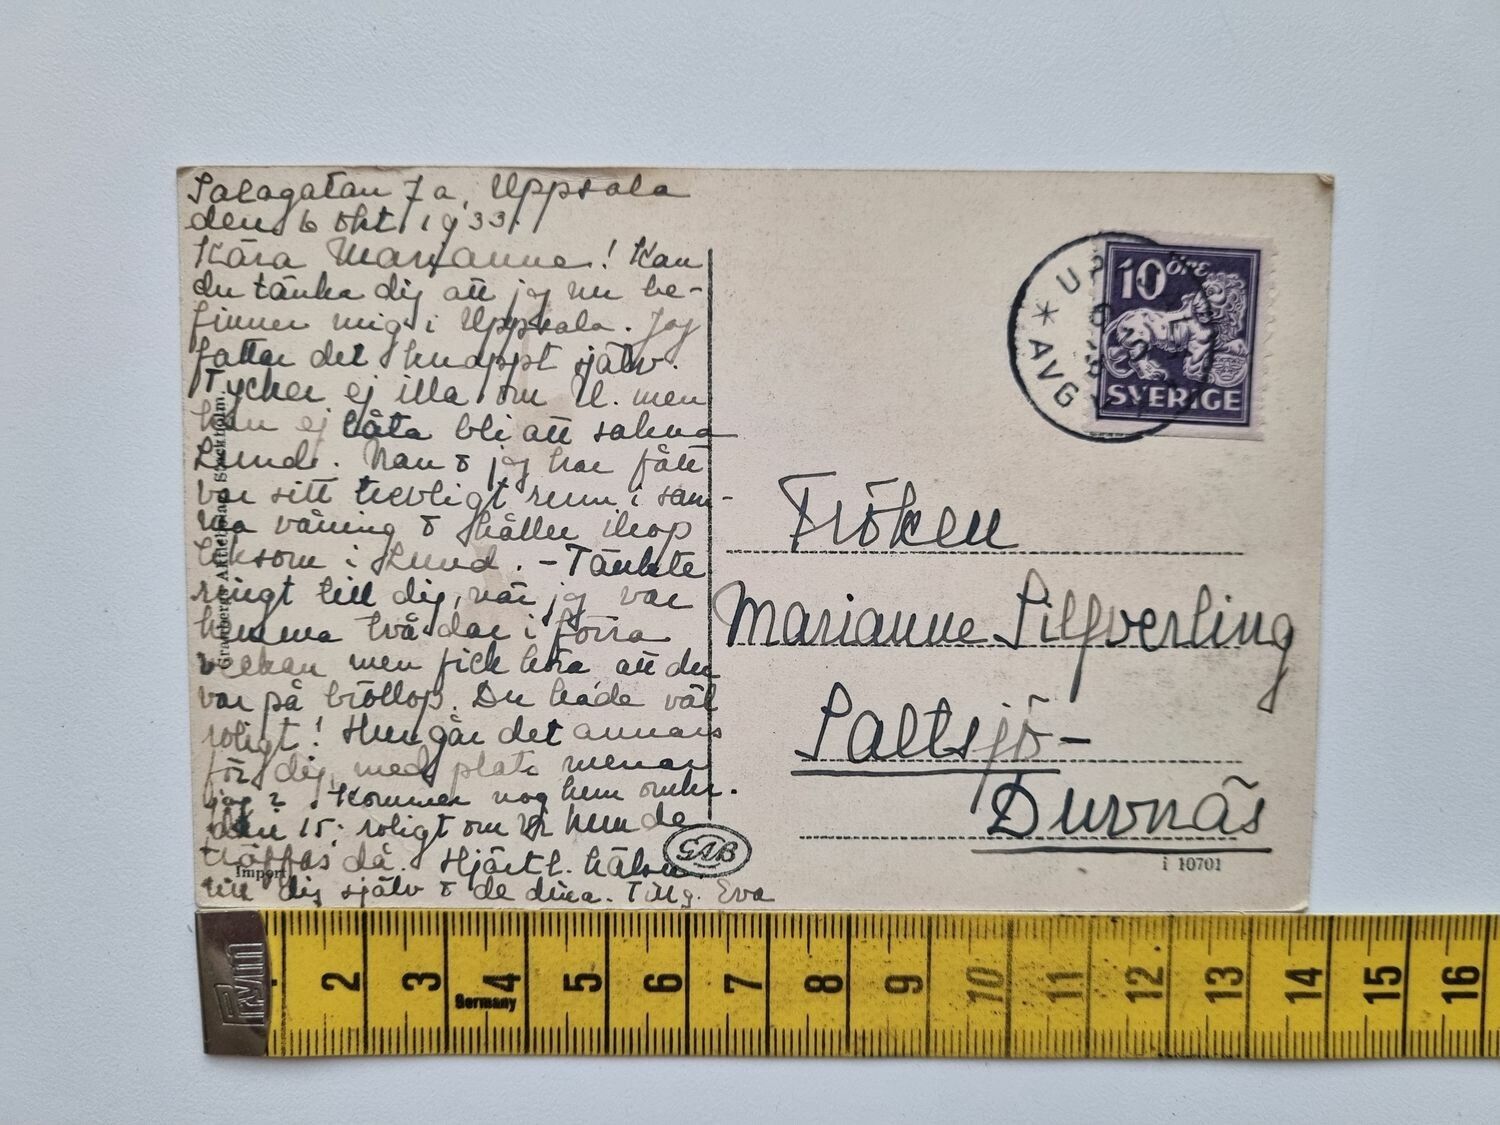 Salagatan 7a, Uppsala
den 6 okt 1933.
Kära Marianne! Kan
du tänka dig att jag nu be-
finner mig i Uppsala. Jag
fattar det knappt själv.
Tycker ej illa om U. men
kan ej låta bli att sakna
Lund. Nan & jag har fått
var sitt trevligt rum i sam-
ma våning & håller ihop
liksom i Lund. - Tänkte
ringt till dig, när jag var
hemma två dar i förra
veckan men fick höra att du
var på bröllop. Du hade väl
roligt! Hur går det annars
för dig, med plats menar
jag? Kommer nog hem omkr.
den 15. roligt om vi kunde
träffas då. Hjärtl. hälsn.
till dig själv & de dina. Tillg. Eva
Aktiebolag Stockholm.
Import
GAB
UP
6 10
* AVG
10 öre
SVERIGE
Fröken
Marianne Silfverling
Saltsjö-
Duvnäs
i 10701
Prym
2 3 4 5 6 7 8 9 10 11 12 13 14 15 16
Germany